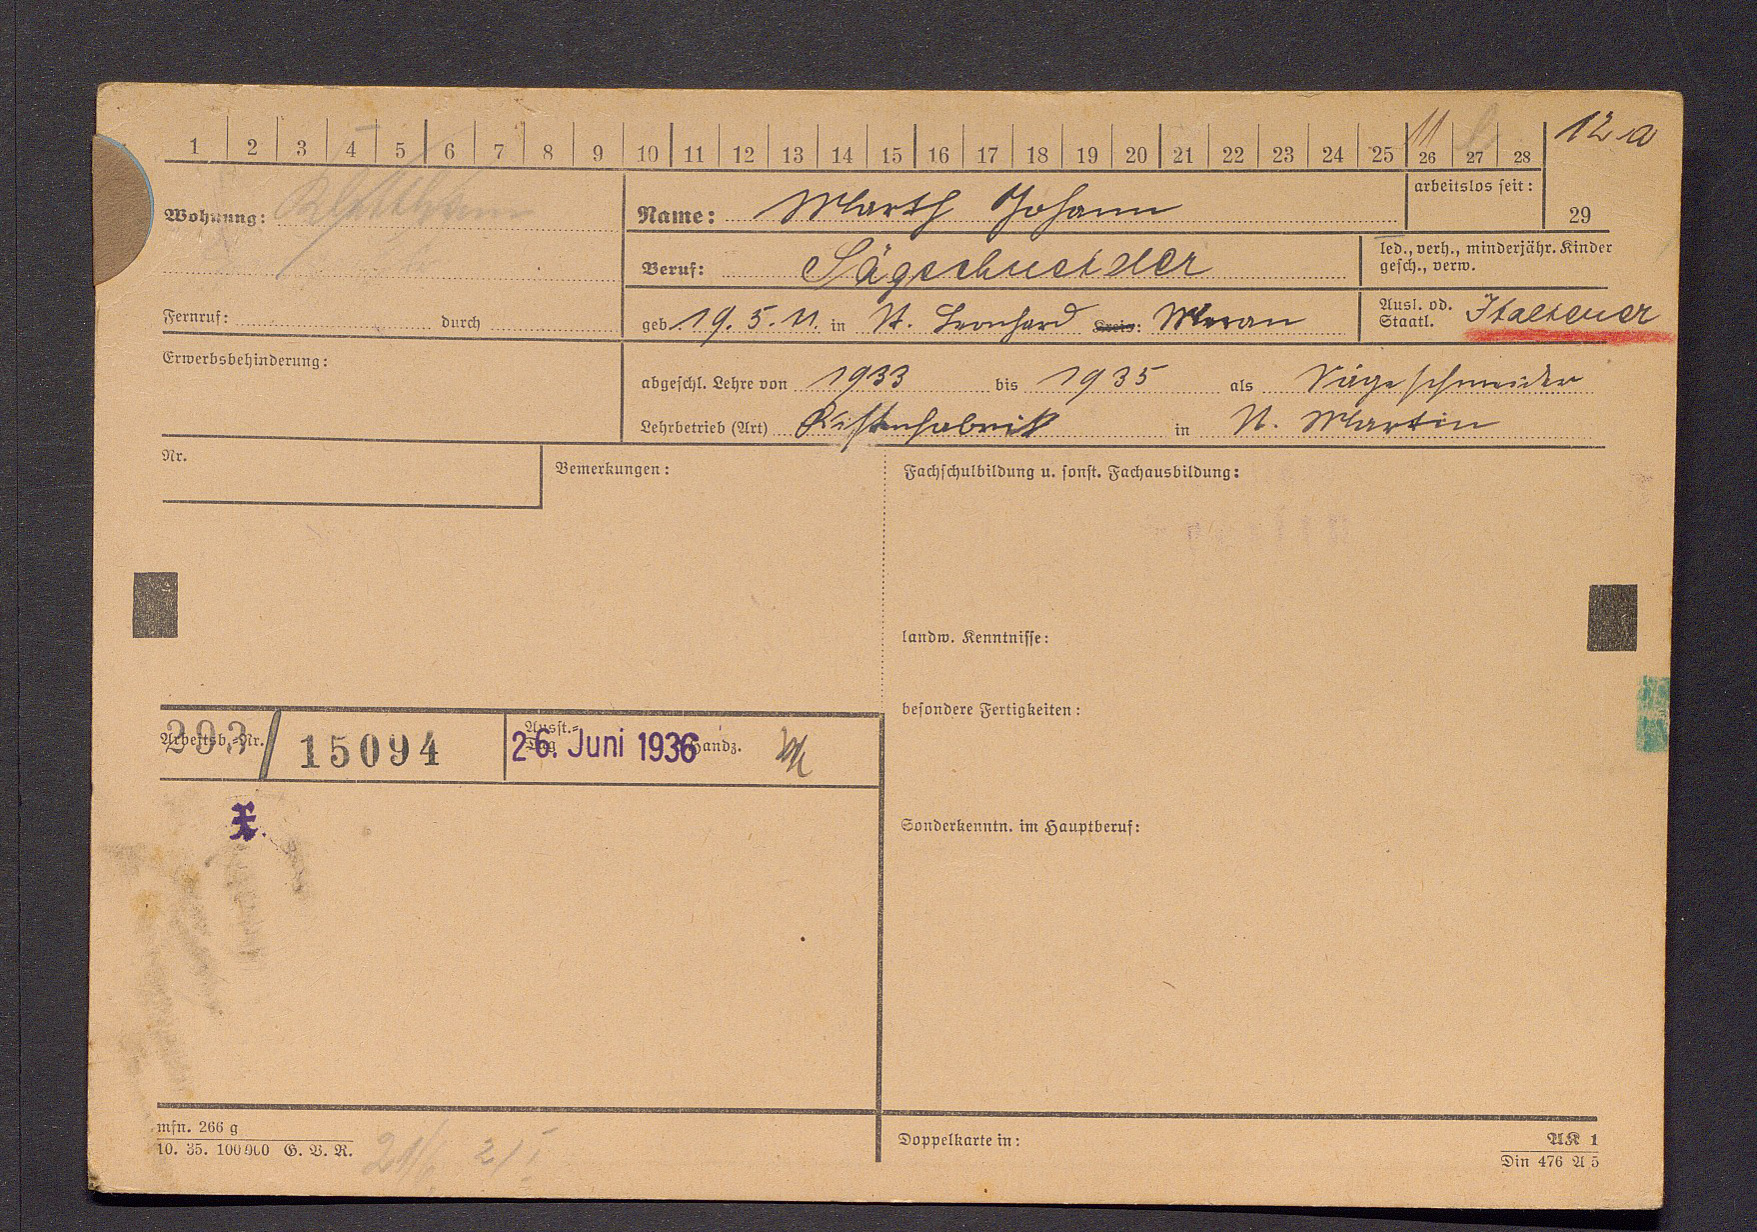 1 2 3 4 5 6 7 8 9 10 11 12 13 14 15 16 17 18 19 20 21 22 23 24 25 26 27 28 12 a
11
Wohnung:
Name: Marth Johann
arbeitslos seit:
29
Beruf: Sägschneider
led., verh., minderjähr. Kinder
gesch., verw.
Fernruf: durch
geb. 19. 5. 11. in St. Leonhard Kreis: Meran
Ausl. od. Staatl. Italiener
Erwerbsbehinderung:
abgeschl. Lehre von 1933 bis 1935 als Sägeschneider
Lehrbetrieb (Art) Kistenfabrik in St. Martin
Nr.
Bemerkungen:
Fachschulbildung u. sonst. Fachausbildung:
landw. Kenntnisse:
besondere Fertigkeiten:
Arbeitsb.-Nr. 293/15094
Ausst.-Tag 26. Juni 1936 Handz.
Sonderkenntn. im Hauptberuf:
mfn. 266 g
10. 35. 100000 G. B. R.
Doppelkarte in:
AK 1
Din 476 A 5